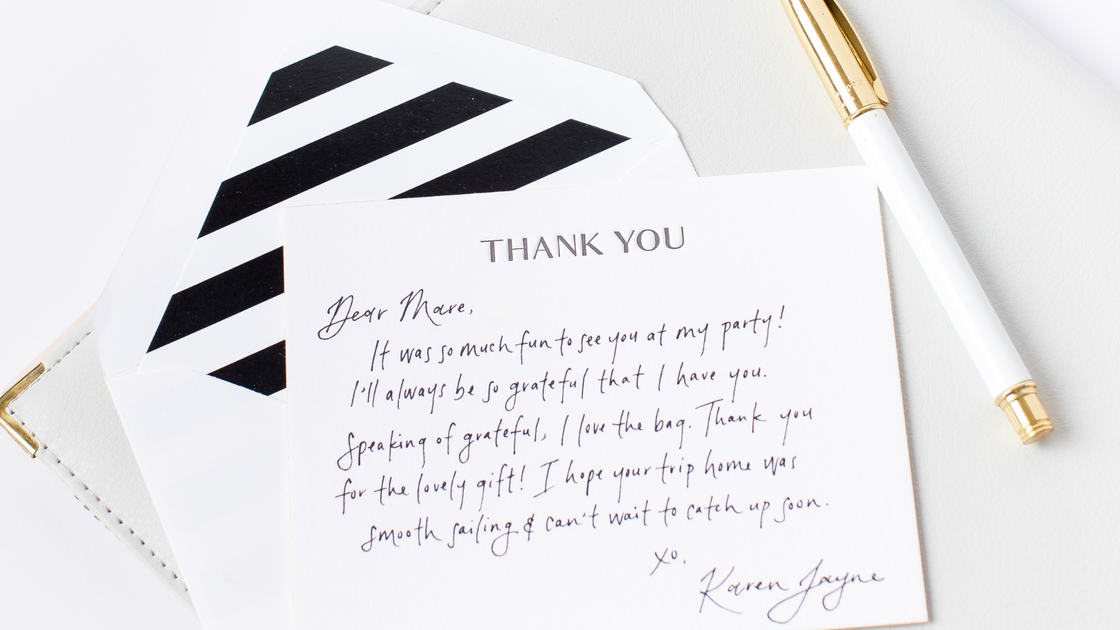 THANK YOU
Dear Mare,
It was so much fun to see you at my party!
I'll always be so grateful that I have you.
Speaking of grateful, I love the bag. Thank you
for the lovely gift! I hope your trip home was
smooth sailing & can't wait to catch up soon.
xo.
Karen Jayne